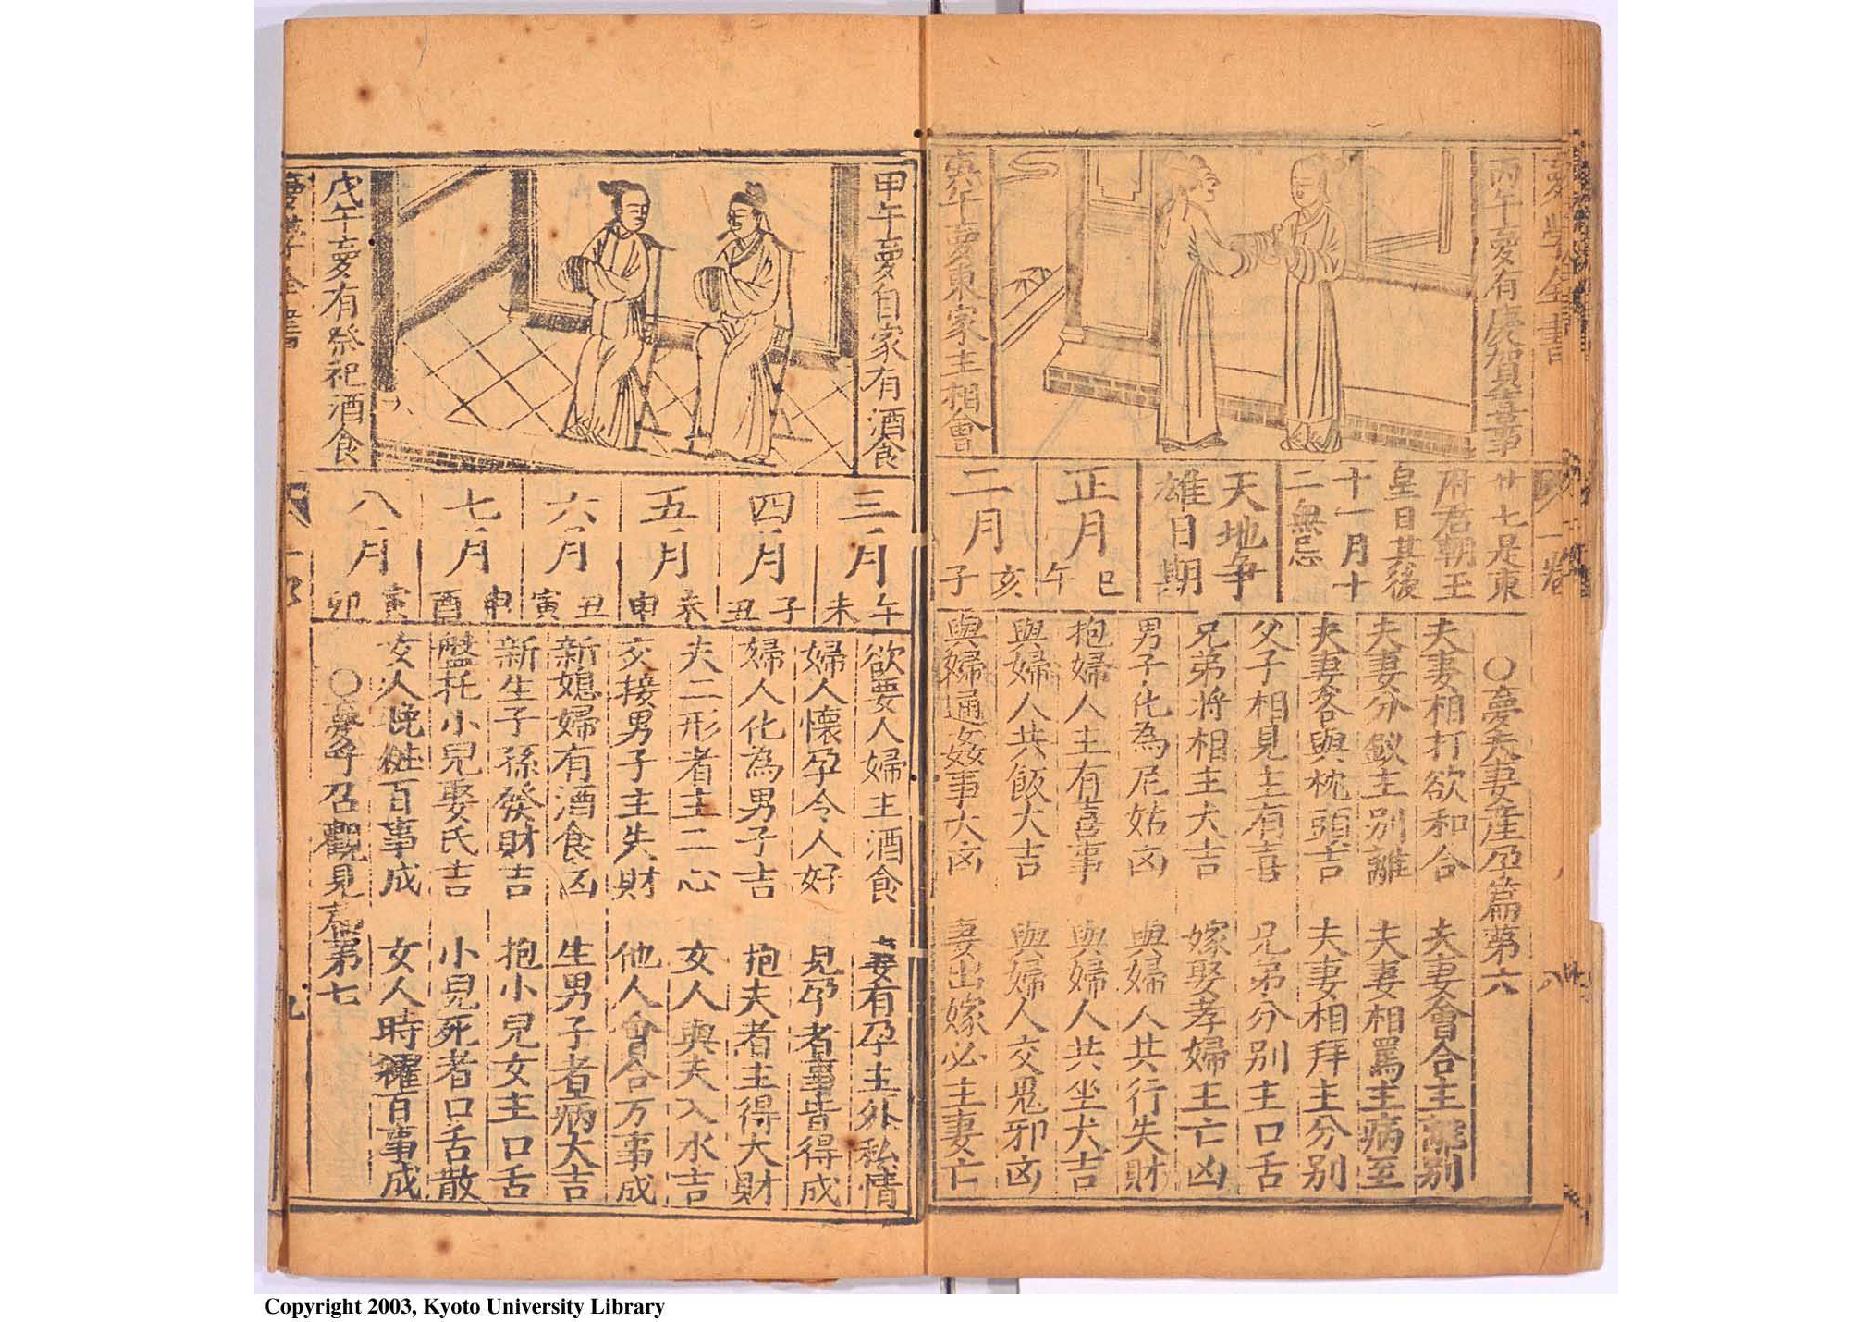 夢學全書
一卷
八
丙午夢有慶賀喜事
寅午夢東家主相會
廿七是東
府君朝王
皇日其後
十一月十
二無忌
天地争
雄日期
正月
巳午
二月
亥子
○夢夫妻產孕篇第六
夫妻相打欲和合
夫妻會合主離別
夫妻分釵主別離
夫妻相罵主病至
夫妻客與枕頭吉
夫妻相拜主分別
父子相見主有喜
兄弟分別主口舌
兄弟將相主大吉
嫁娶孝婦主亡凶
男子化為尼姑凶
與婦人共行失財
抱婦人主有喜事
與婦人共坐大吉
與婦人共飯大吉
與婦人交鬼邪凶
與婦通姦事大凶
妻出嫁必主妻亡
甲午夢自家有酒食
戊午夢有祭祀酒食
三月
午未
四月
子丑
五月
申
六月
丑寅
七月
申酉
八月
寅卯
欲要人婦主酒食
妻有孕主外私情
婦人懷孕令人好
見孕者事皆得成
婦人化為男子吉
抱夫者主得大財
夫二形者主二心
女人與夫入水吉
交接男子主失財
他人會合万事成
新媳婦有酒食凶
生男子者病大吉
新生子孫發財吉
抱小兒女主口舌
盤托小兒娶氏吉
小兒死者口舌散
女人晚粧百事成
女人時耀百事成
○夢呼召觀見篇第七
九
Copyright 2003, Kyoto University Library